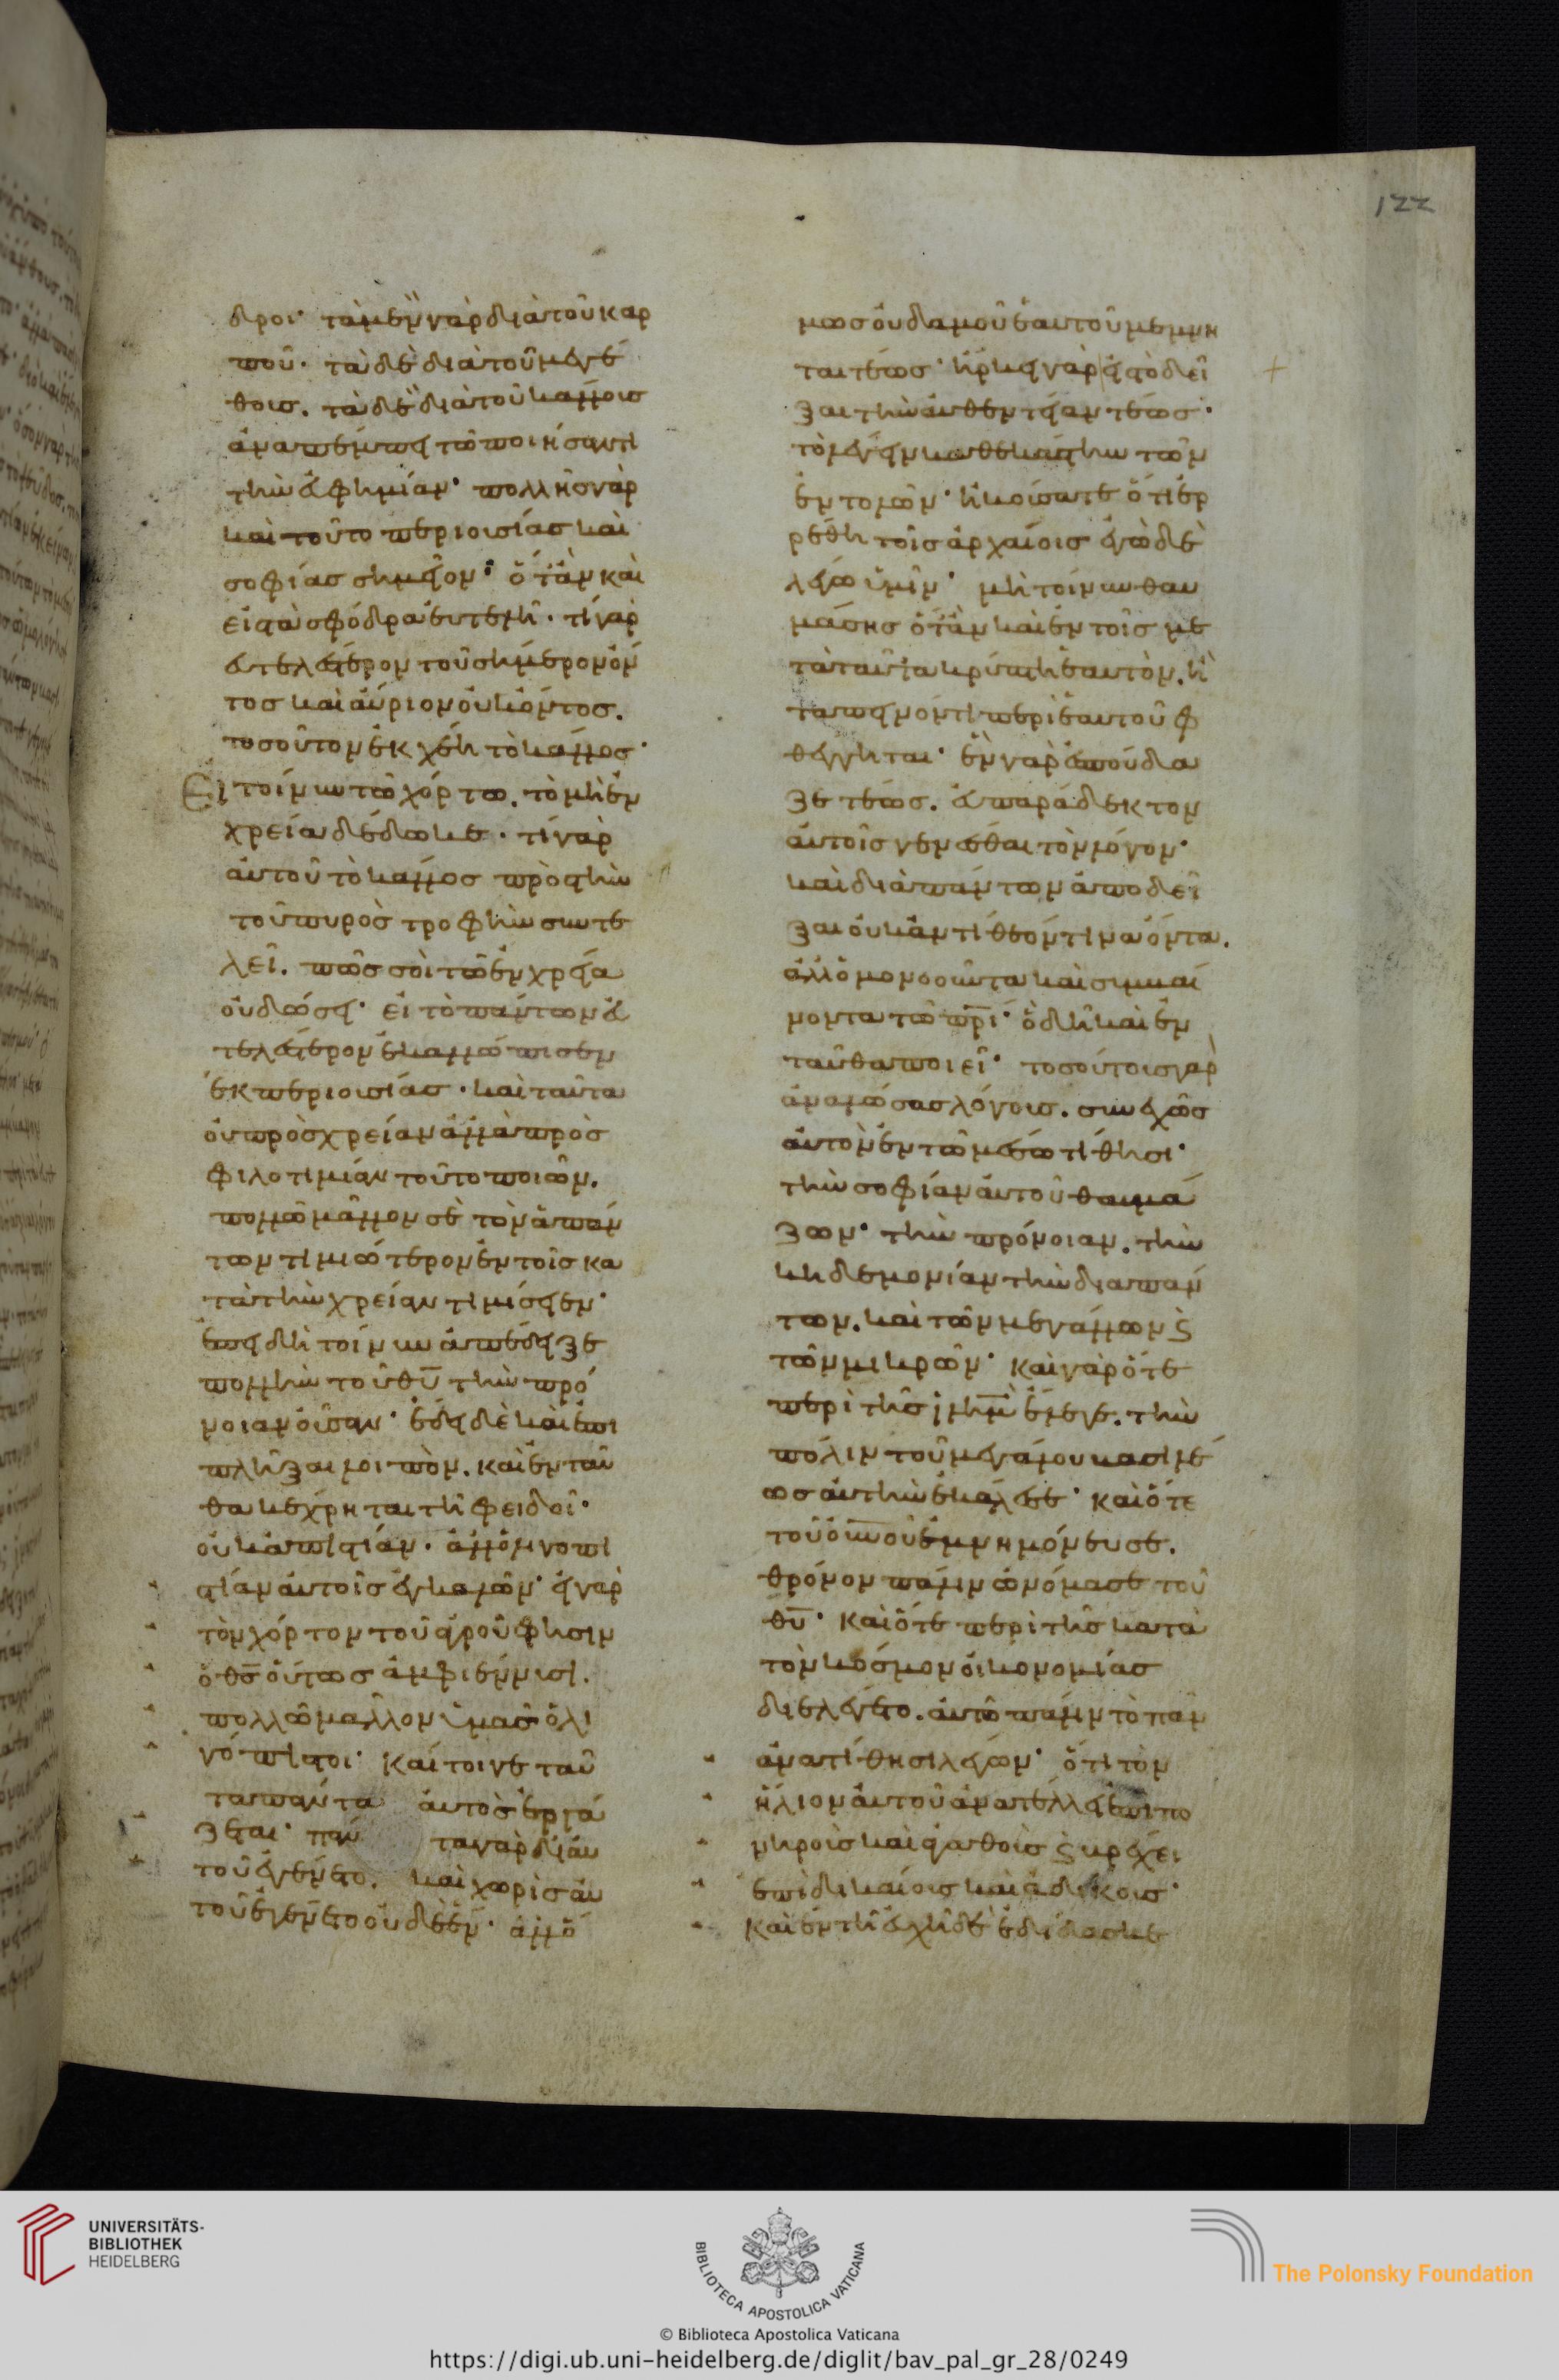 122
δροι· τὰ μὲν γὰρ διὰ τοῦ καρ
ποῦ· τὰ δὲ διὰ τοῦ μεγέ
θους. τὰ δὲ διὰ τοῦ κάλλους
ἀναπέμπει τῶ ποιήσαντι
τὴν εὐφημίαν· πολλῆς γὰρ
καὶ τοῦτο περιουσίας καὶ
σοφίας σημεῖον· ὅταν καὶ
εἰς τὰ σφόδρα εὐτελῆ· τί γὰρ
εὐτελέστερον τοῦ σήμερον ὄν
τος καὶ αὔριον οὐκ ὄντος.
τοσοῦτον ἐκχέη τὸ κάλλος·
Εἰ τοίνυν τῶ χόρτω. τὸ μὴ ἐν
χρεία δέδωκε· τί γὰρ
αὐτοῦ τὸ κάλλος πρὸς τὴν
τοῦ πυρὸς τροφὴν συντε
λεῖ. πῶς σοὶ τῶ ἐν χρεία
οὐ δώσει· εἰ τὸ πάντων εὐ
τελέστερον ἐκαλλώπισεν
ἐκ περιουσίας· καὶ ταῦτα
οὐ πρὸς χρείαν ἀλλὰ πρὸς
φιλοτιμίαν τοῦτο ποιῶν.
πολλῶ μᾶλλον σὲ τὸν ἁπάν
των τιμιώτερον ἐν τοῖς κα
τὰ τὴν χρείαν τιμήσειεν·
ἐπειδὴ τοίνυν ἀπέδειξε
πολλὴν τοῦ θυ τὴν πρό
νοιαν οὖσαν· ἔδει δὲ καὶ ἐπι
πλῆξαι λοιπὸν. καὶ ἐνταῦ
θα κέχρηται τῆ φειδοῖ·
οὐκ ἀπιστίαν· ἀλλ' ὀλιγοπι
στίαν αὐτοῖς ἐγκαλῶν· εἰ γὰρ
τὸν χόρτον τοῦ ἀγροῦ φησιν
ὁ θς οὕτως ἀμφιέννυσι.
πολλῶ μᾶλλον ὑμᾶς ὀλι
γόπιστοι· καίτοιγε ταῦ
τα πάντα αὐτὸς ἐργά
ζεται· πάντα γὰρ δι' αὐ
τοῦ ἐγένετο. καὶ χωρὶς αὐ
τοῦ ἐγένετο οὐδὲ ἕν· ἀλλ' ὅ
μως οὐδαμοῦ ἑαυτοῦ μέμνη
ται τέως· ἤρκει γὰρ εἰς τὸ δεῖ
ξαι τὴν αὐθεντείαν τέως·
τὸ λέγειν καθ' ἑκάστην τῶν
ἐντολῶν· ἠκούσατε ὅτι ἐρ
ρέθη τοῖς ἀρχαίοις ἐγὼ δὲ
λέγω ὑμῖν· μὴ τοίνυν θαυ
μάσης ὅταν καὶ ἐν τοῖς με
τὰ ταῦτα κρύπτη ἑαυτὸν. ἢ
ταπεινόν τι περὶ ἑαυτοῦ φ
θέγγηται· ἓν γὰρ ἐσπούδα
ζε τέως. εὐπαράδεκτον
αὐτοῖς γενέσθαι τὸν λόγον·
καὶ διὰ πάντων ἀποδεῖ
ξαι οὐκ ἀντίθεόν τινα ὄντα.
ἀλλ' ὁμονοοῦντα καὶ συμβαί
νοντα τῶ πρι· ὃ δὴ καὶ ἐν
ταῦθα ποιεῖ· τοσούτους γὰρ
ἀναλώσας λόγους. συνεχῶς
αὐτὸν ἐν τῶ μέσω τίθησι·
τὴν σοφίαν αὐτοῦ θαυμά
ζων· τὴν πρόνοιαν. τὴν
κηδεμονίαν τὴν διὰ πάν
των. καὶ τῶν μεγάλων ϗ
τῶν μικρῶν· καὶ γὰρ ὅτε
περὶ τῆς ἱλημ ἔλεγε. τὴν
πόλιν τοῦ μεγάλου βασιλέ
ως αὐτὴν ἐκάλεσε· καὶ ὅτε
τοῦ οὐνοῦ ἐμνημόνευσε.
θρόνον πάλιν ὠνόμασε τοῦ
θυ· καὶ ὅτε περὶ τῆς κατὰ
τὸν κόσμον οἰκονομίας
διελέγετο. αὐτῶ πάλιν τὸ πᾶν
ἀνατίθησι λέγων· ὅτι τὸν
ἥλιον αὐτοῦ ἀνατέλλει ἐπὶ πο
νηροὺς καὶ ἀγαθοὺς ϗ βρέχει
ἐπὶ δικαίους καὶ ἀδίκους·
καὶ ἐν τῆ εὐχῆ δὲ ἐδίδασκε
UNIVERSITÄTS-
BIBLIOTHEK
HEIDELBERG
BIBLIOTECA APOSTOLICA VATICANA
The Polonsky Foundation
© Biblioteca Apostolica Vaticana
https://digi.ub.uni-heidelberg.de/diglit/bav_pal_gr_28/0249